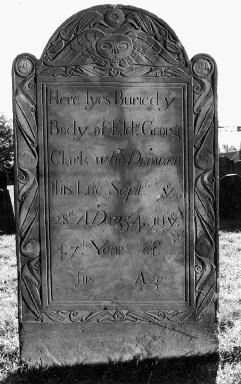 Here lyes Buried yᵉ
Body of
Clark who Departed
this Life Septʳ yᵉ
28ᵗ A.D. in yᵉ
47ᵗ Year of
his Age